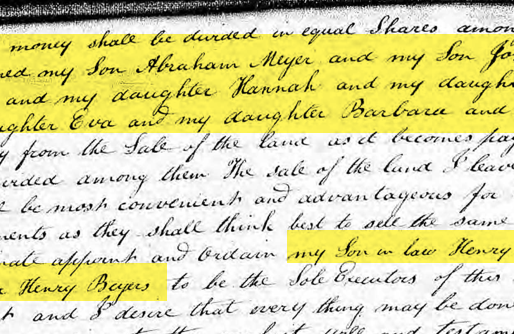 money shall be divided in equal Shares amon
ned my Son Abraham Meyer and my Son Jo
and my daughter Hannah and my daught
ughter Eva and my daughter Barbara and
y from the Sale of the land as it becomes pay
vided among them The sale of the land I leave
l be most convenient and advantageous for
ments as they shall think best to sell the same
nate appoint and Ordain my Son in law Henry
Henry Beyers to be the Sole Executors of this
t and I desire that every thing may be don
last will and testam